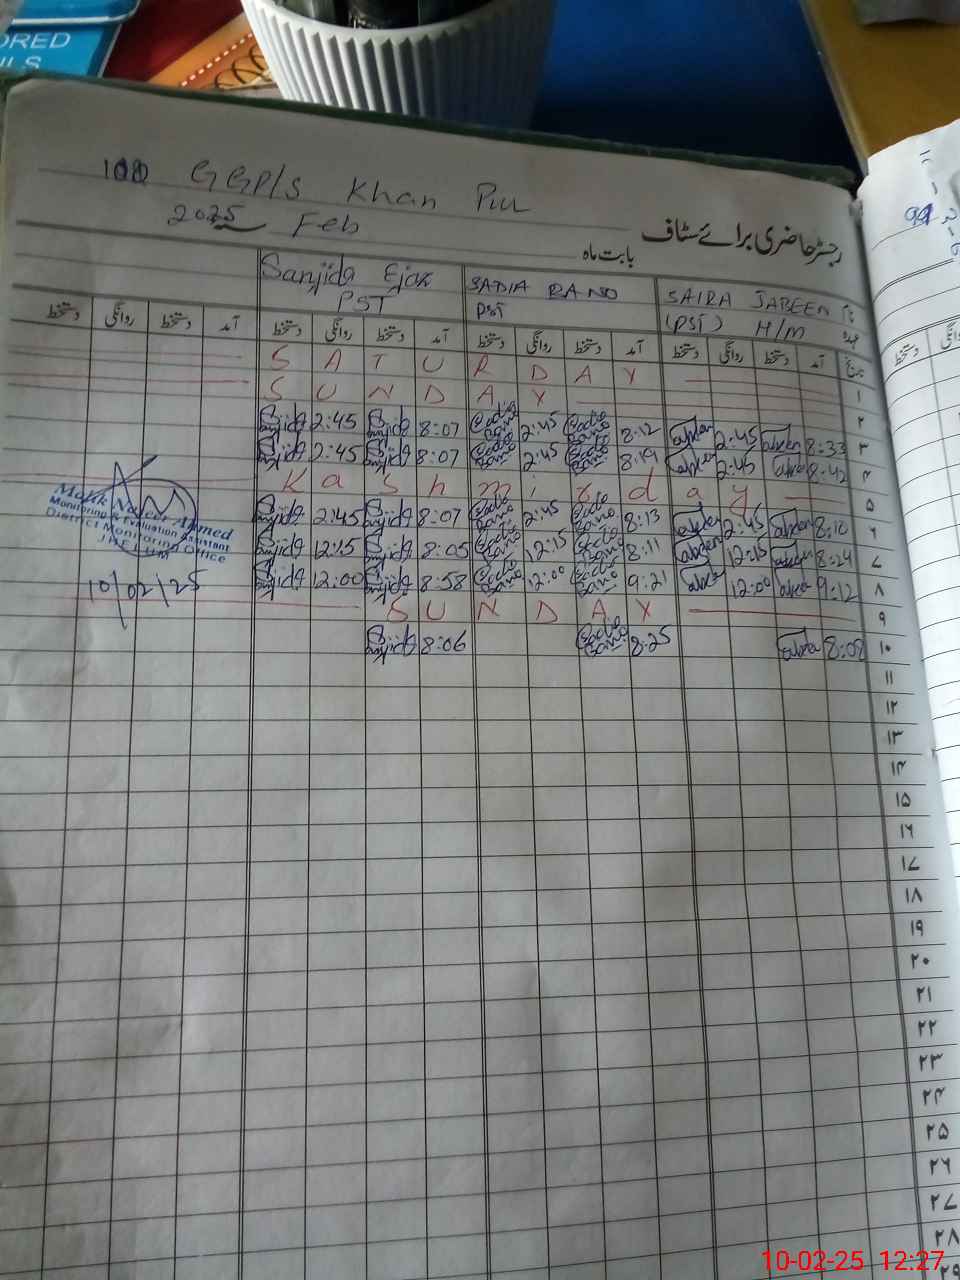 ORED
LS
100 GGP/S Khan Pur
2025 Feb
رجسٹر حاضری برائے سٹاف
بابت ماہ
Sanjida Ejaz PST SADIA BANO PST SAIRA JABEEN (PST) H/M نام عہدہ
دستخط روانگی دستخط آمد دستخط روانگی دستخط آمد دستخط روانگی دستخط آمد دستخط روانگی دستخط آمد تاریخ
SATURDAY ١
SUNDAY ٢
Sanjida 2:45 Sanjida 8:07 Sadia Bano 2:45 Sadia Bano 8:12 2:45 8:33 ٣
Sanjida 2:45 Sanjida 8:07 Sadia Bano 2:45 Sadia Bano 8:19 2:45 8:42 ۴
Kashmir day ۵
Sanjida 2:45 Sanjida 8:07 Sadia Bano 2:45 Sadia Bano 8:13 2:45 8:10 ۶
Sanjida 12:15 Sanjida 8:05 Sadia Bano 12:15 Sadia Bano 8:11 12:15 8:24 ۷
Sanjida 12:00 Sanjida 8:58 Sadia Bano 12:00 Sadia Bano 9:21 12:00 9:12 ۸
SUNDAY ۹
Sanjida 8:06 Sadia Bano 8:25 ۱۰
Ahmed
Monitoring & Evaluation Assistant
District Monitoring Office
JHELUM
10/02/25
۱۱
۱۲
۱۳
۱۴
۱۵
۱۶
۱۷
۱۸
۱۹
۲۰
۲۱
۲۲
۲۳
۲۴
۲۵
۲۶
۲۷
۲۸
۲۹
10-02-25 12:27